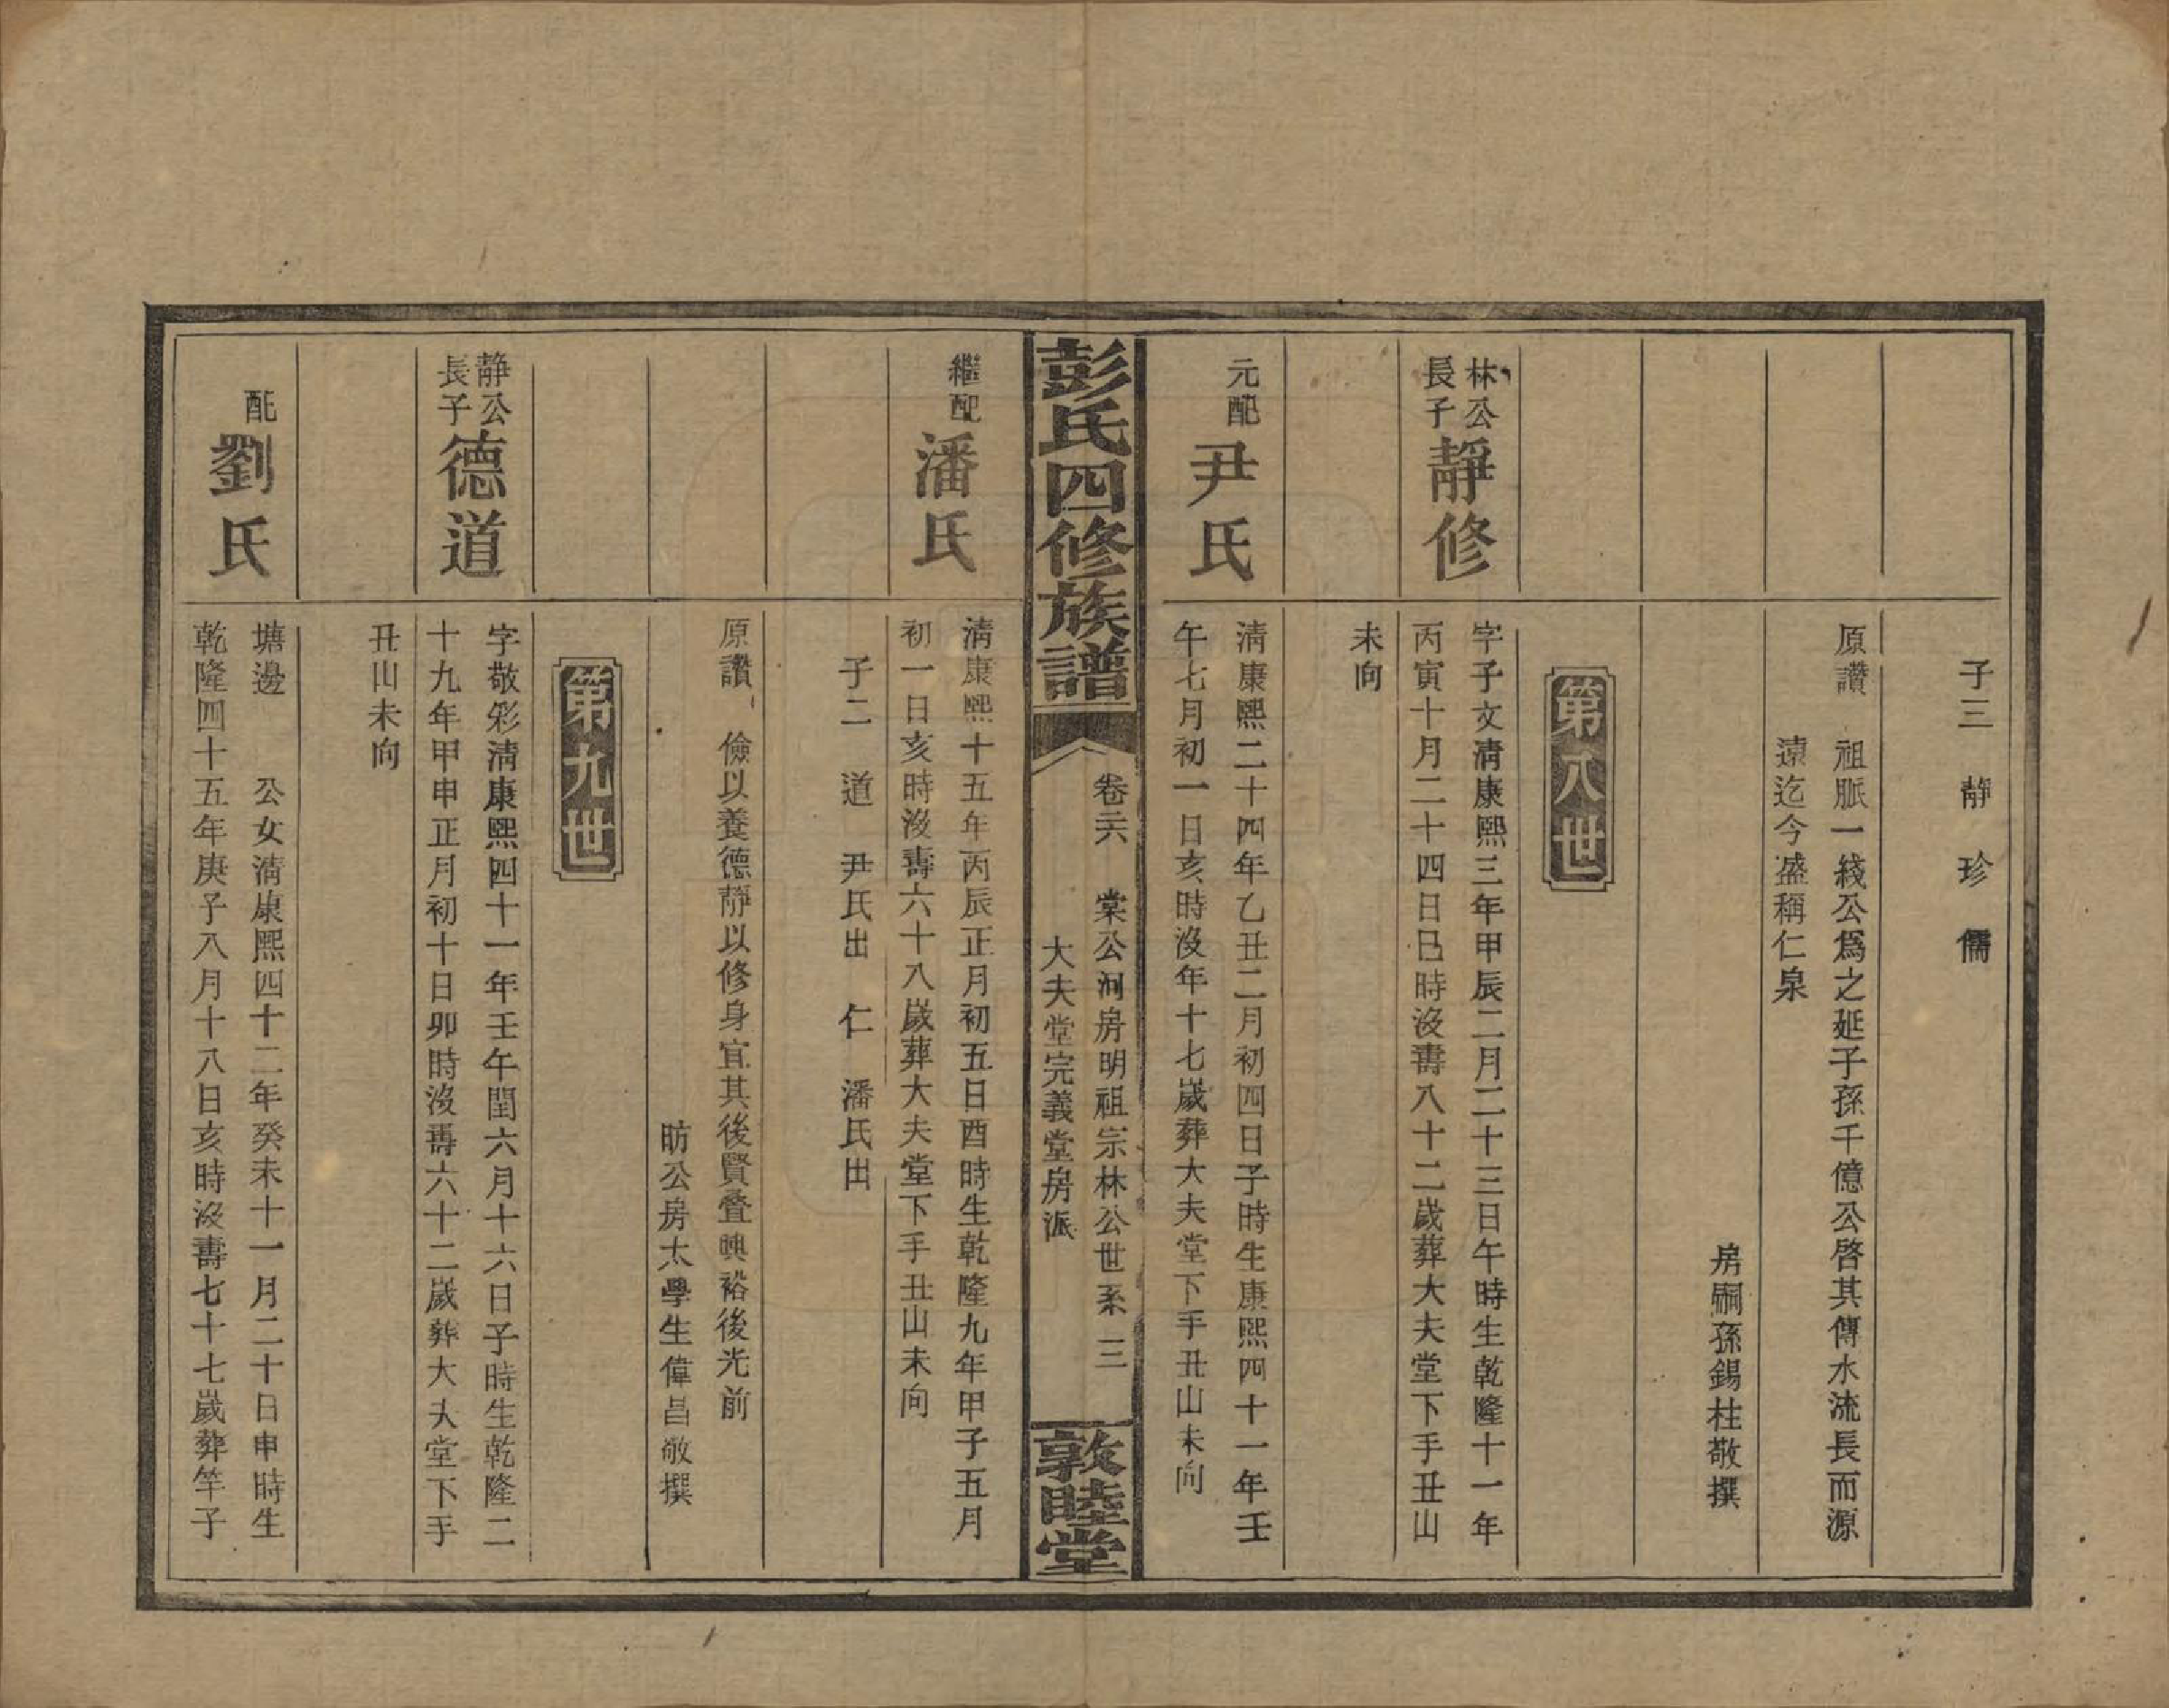 子三 靜 珍 儒
原讚 祖脈一綫公爲之延子孫千億公啓其傳水流長而源
遠迄今盛稱仁泉
房嗣孫錫柱敬撰
第八世
林公
長子
靜修
字子文清康熙三年甲辰二月二十三日午時生乾隆十一年
丙寅十月二十四日巳時沒壽八十二歲葬大夫堂下手丑山
未向
元配
尹氏
清康熙二十四年乙丑二月初四日子時生康熙四十一年壬
午七月初一日亥時沒年十七歲葬大夫堂下手丑山未向
彭氏四修族譜
卷六 棠公洞房明祖宗林公世系 三
大夫堂完義堂房派
敦睦堂
繼配
潘氏
清康熙十五年丙辰正月初五日酉時生乾隆九年甲子五月
初一日亥時沒壽六十八歲葬大夫堂下手丑山未向
子二 道 尹氏出 仁 潘氏出
原讚 儉以養德靜以修身宜其後賢叠興裕後光前
昉公房太學生偉昌敬撰
第九世
靜公
長子
德道
字敬彩清康熙四十一年壬午閏六月十六日子時生乾隆二
十九年甲申正月初十日卯時沒壽六十二歲葬大夫堂下手
丑山未向
配
劉氏
塘邊 公女清康熙四十二年癸未十一月二十日申時生
乾隆四十五年庚子八月十八日亥時沒壽七十七歲葬竿子